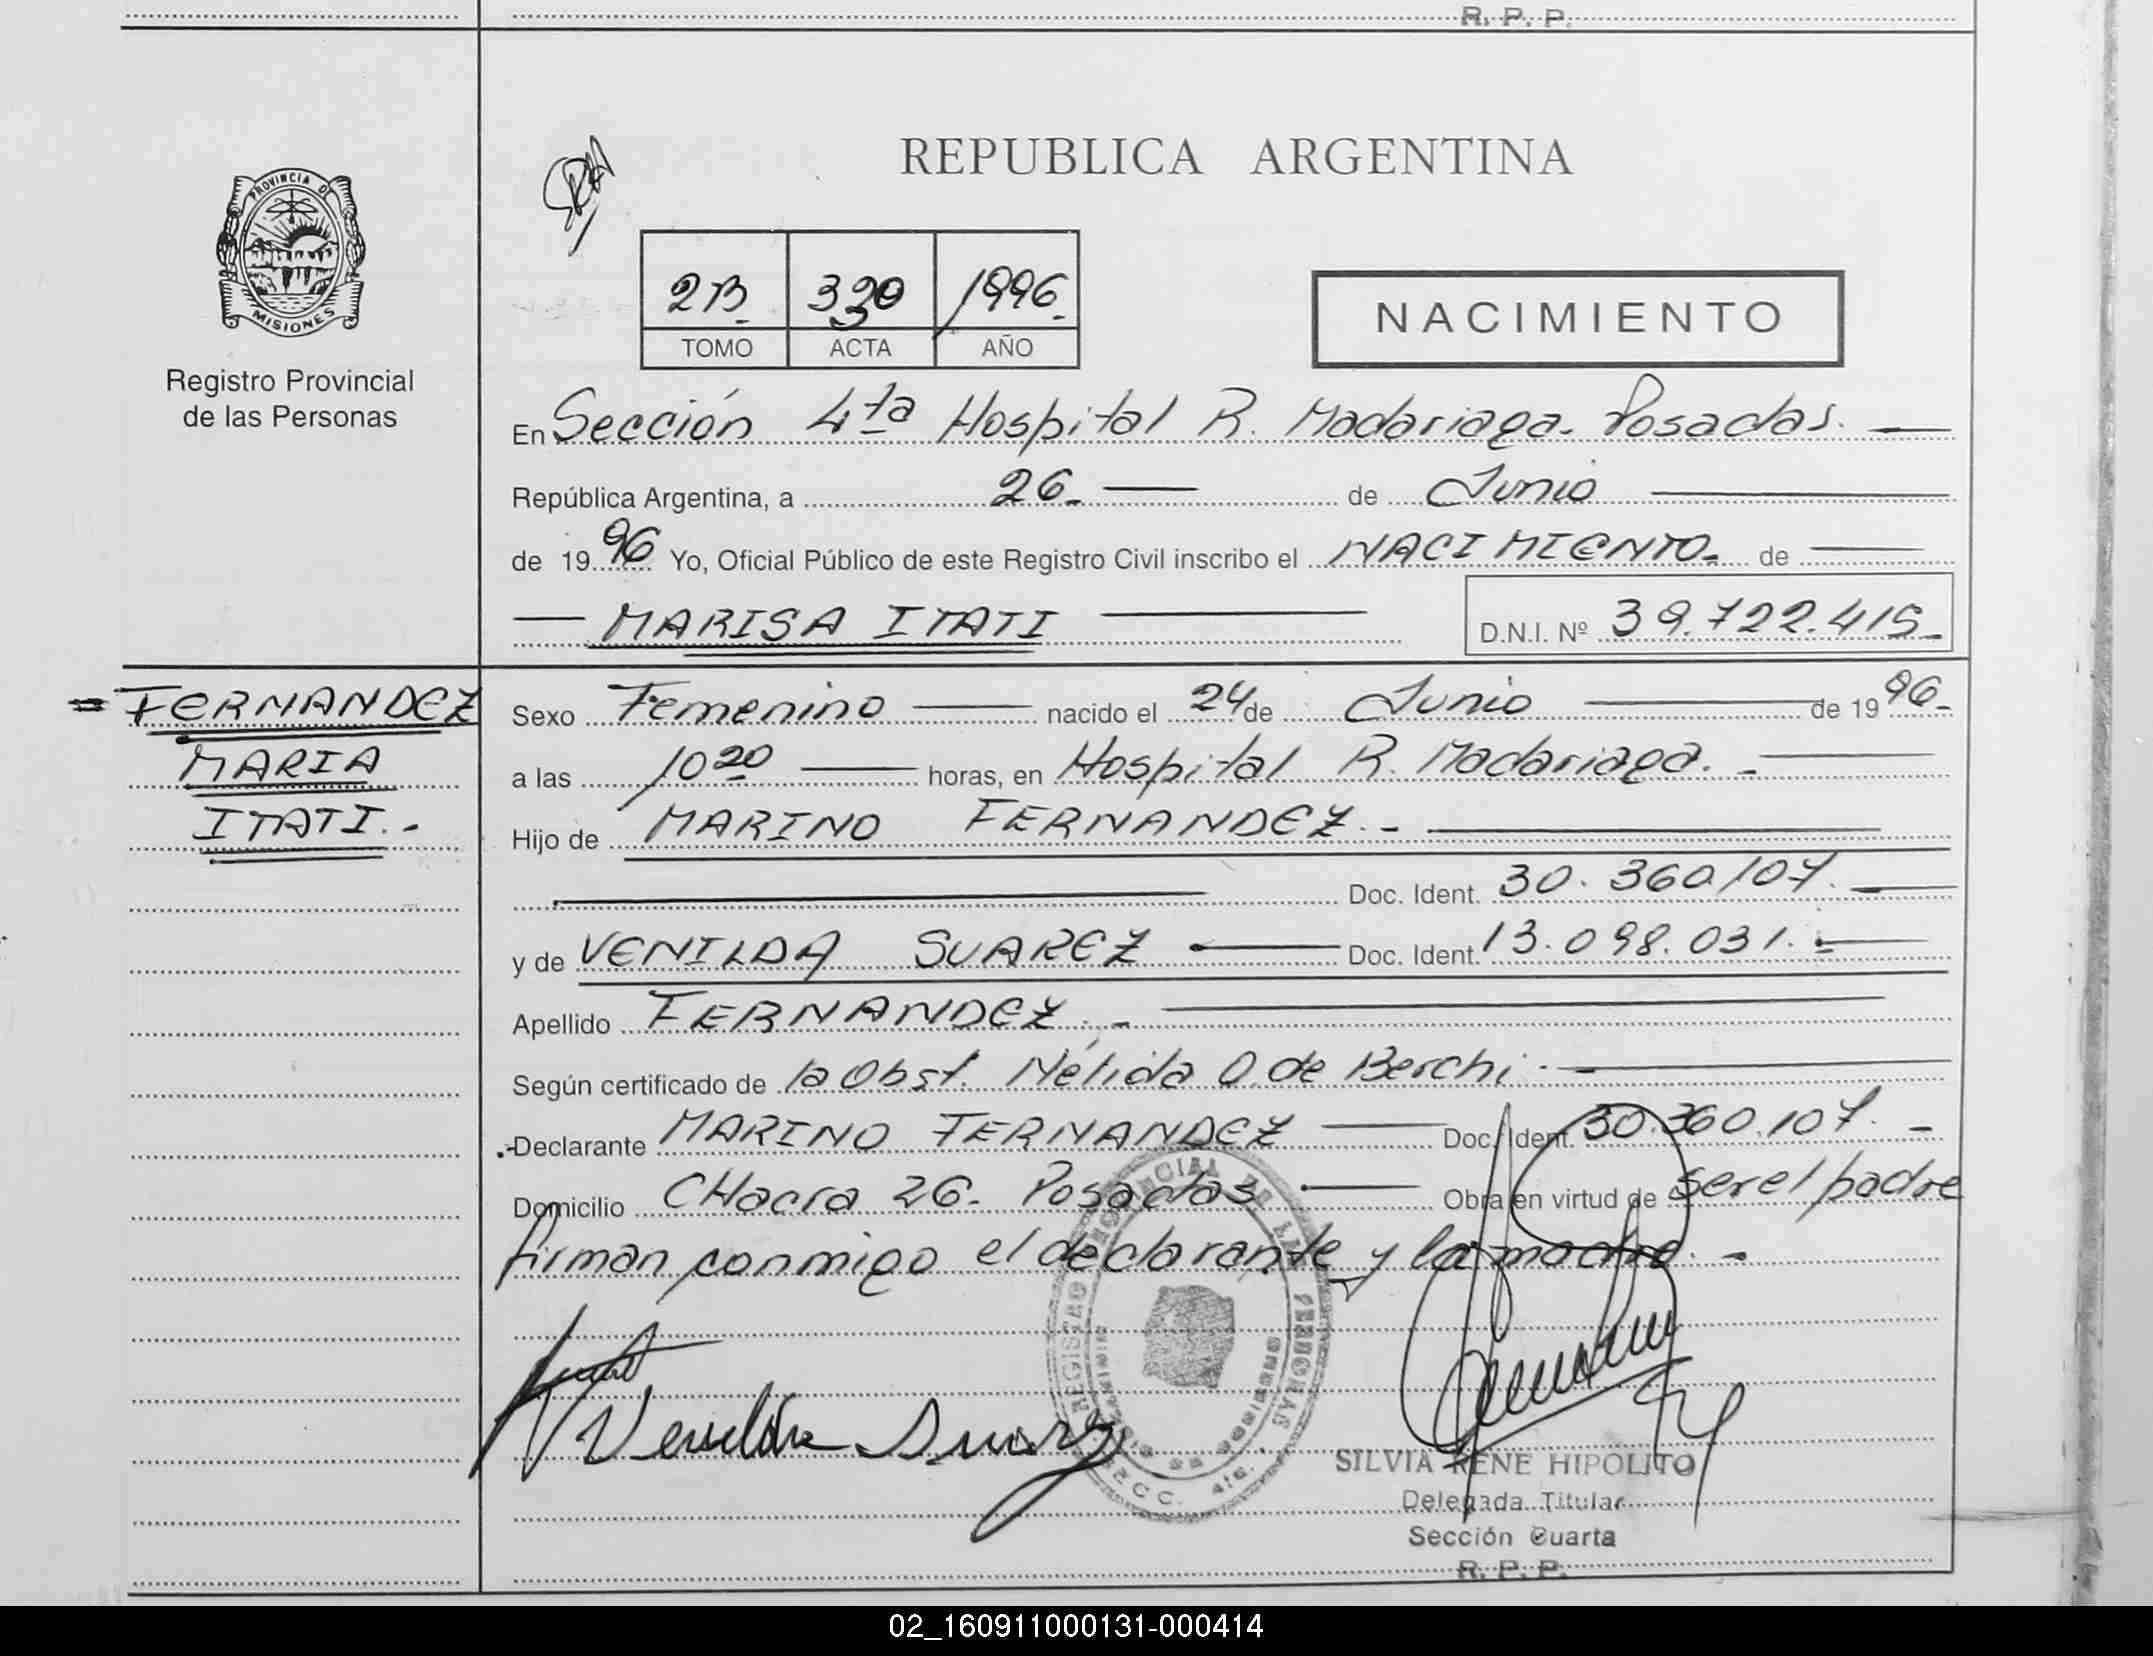 R. P. P.
REPUBLICA ARGENTINA
PROVINCIA DE
MISIONES
Registro Provincial
de las Personas
2B 330 1996
TOMO ACTA AÑO
NACIMIENTO
En Sección 4ta Hospital R. Madariaga. Posadas.
República Argentina, a 26 de Junio
de 1996 Yo, Oficial Público de este Registro Civil inscribo el NACIMIENTO de
MARISA ITATI D.N.I. Nº 39.722.415
FERNANDEZ
MARIA
ITATI.
Sexo Femenino nacido el 24 de Junio de 1996
a las 10 20 horas, en Hospital R. Madariaga.
Hijo de MARINO FERNANDEZ.
Doc. Ident. 30.360.107.
y de VENILDA SUAREZ Doc. Ident. 13.098.031.
Apellido FERNANDEZ.
Según certificado de la Obst. Nélida O. de Berchi
Declarante MARINO FERNANDEZ Doc. Ident. 30.360.107.
Domicilio CHacra 26. Posadas Obra en virtud de ser el padre
firman conmigo el declarante y la madre.
Venilda Suarez
SILVIA RENE HIPOLITO
Delegada Titular
Sección Cuarta
R. P. P.
02_160911000131-000414